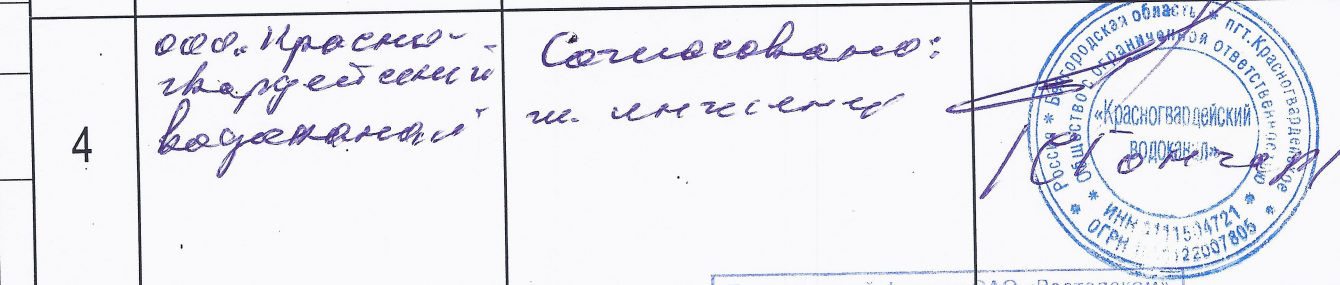 4
ООО "Красно-
гвардейский
водоканал"
Согласовано:
гл. инженер
Россия * Белгородская область * пгт.Красногвардейское *
Общество с ограниченной ответственностью *
«Красногвардейский
водоканал»
ИНН 3111504721
ОГРН 22007805
ОАО «Ростелеком»